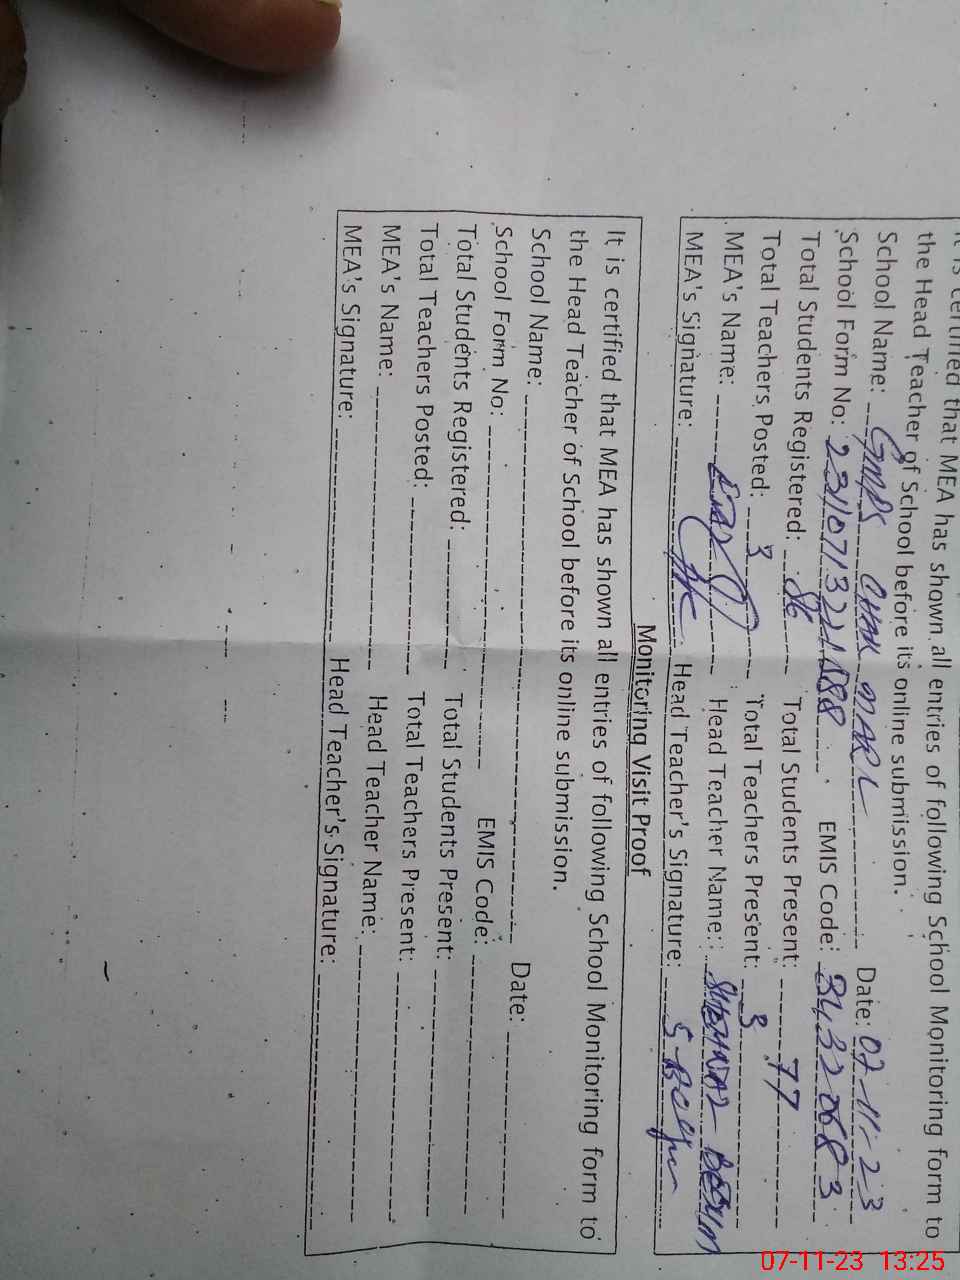 It is certified that MEA has shown all entries of following School Monitoring form to
the Head Teacher of School before its online submission.
School Name: GMPS CHAK MARL Date: 07-11-23
School Form No: EMIS Code: 34322068 3
Total Students Registered: 86 Total Students Present: 77
Total Teachers Posted: 3 Total Teachers Present: 3
MEA's Name: Head Teacher Name: SHEHNAZ BEGUM
MEA's Signature: Head Teacher's Signature: S-Begum
Monitoring Visit Proof
It is certified that MEA has shown all entries of following School Monitoring form to
the Head Teacher of School before its online submission.
School Name: Date:
School Form No: EMIS Code:
Total Students Registered: Total Students Present:
Total Teachers Posted: Total Teachers Present:
MEA's Name: Head Teacher Name:
MEA's Signature: Head Teacher's Signature:
07-11-23 13:25